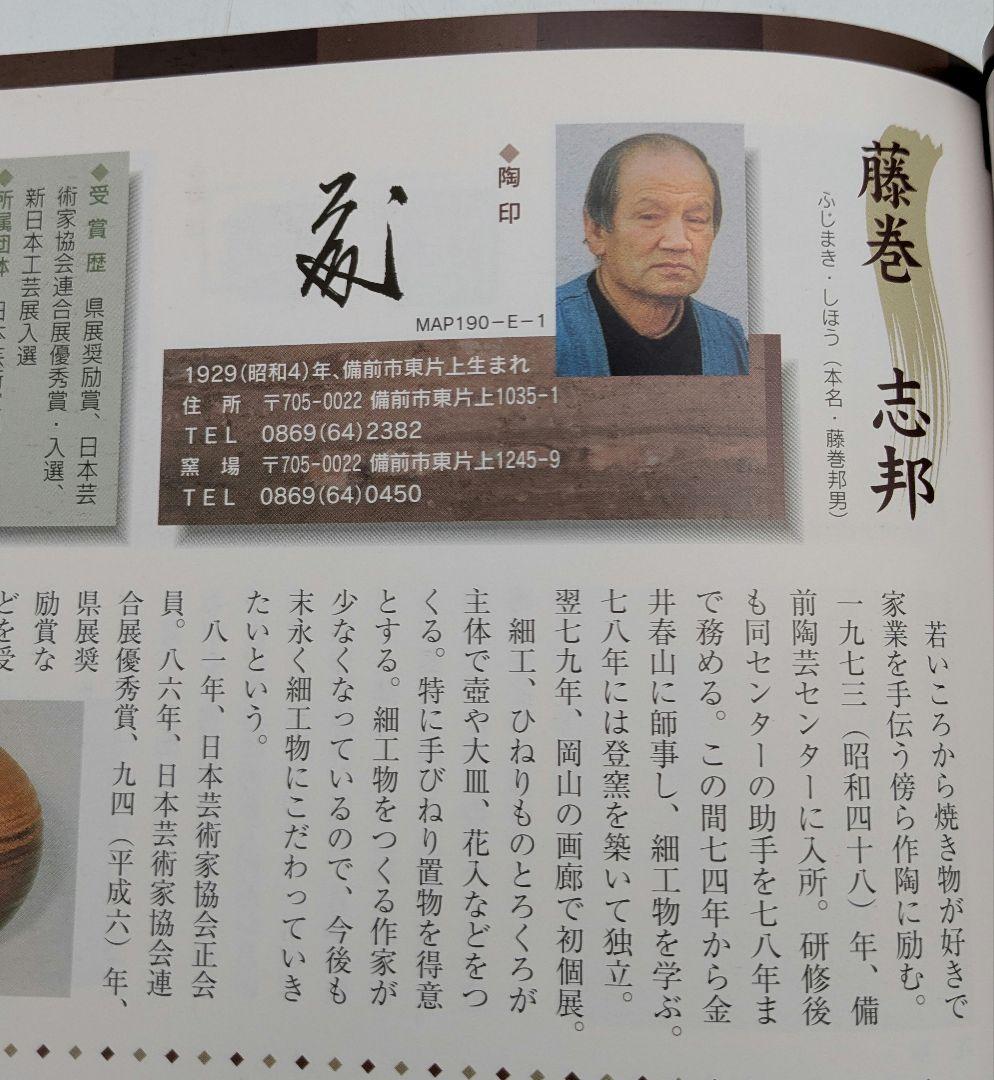 藤巻 志邦
ふじまき・しほう（本名・藤巻邦男）
◆陶印
MAP190−E−1
1929(昭和4)年、備前市東片上生まれ
住 所 〒705-0022 備前市東片上1035-1
TEL 0869(64)2382
窯 場 〒705-0022 備前市東片上1245-9
TEL 0869(64)0450
◆受賞歴 県展奨励賞、日本芸
術家協会連合展優秀賞・入選、
新日本工芸展入選
◆所属団体
若いころから焼き物が好きで
家業を手伝う傍ら作陶に励む。
一九七三（昭和四十八）年、備
前陶芸センターに入所。研修後
も同センターの助手を七八年ま
で務める。この間七四年から金
井春山に師事し、細工物を学ぶ。
七八年には登窯を築いて独立。
翌七九年、岡山の画廊で初個展。
細工、ひねりものとろくろが
主体で壺や大皿、花入などをつ
くる。特に手びねり置物を得意
とする。細工物をつくる作家が
少なくなっているので、今後も
末永く細工物にこだわっていき
たいという。
八一年、日本芸術家協会正会
員。八六年、日本芸術家協会連
合展優秀賞、九四（平成六）年、
県展奨
励賞な
どを受